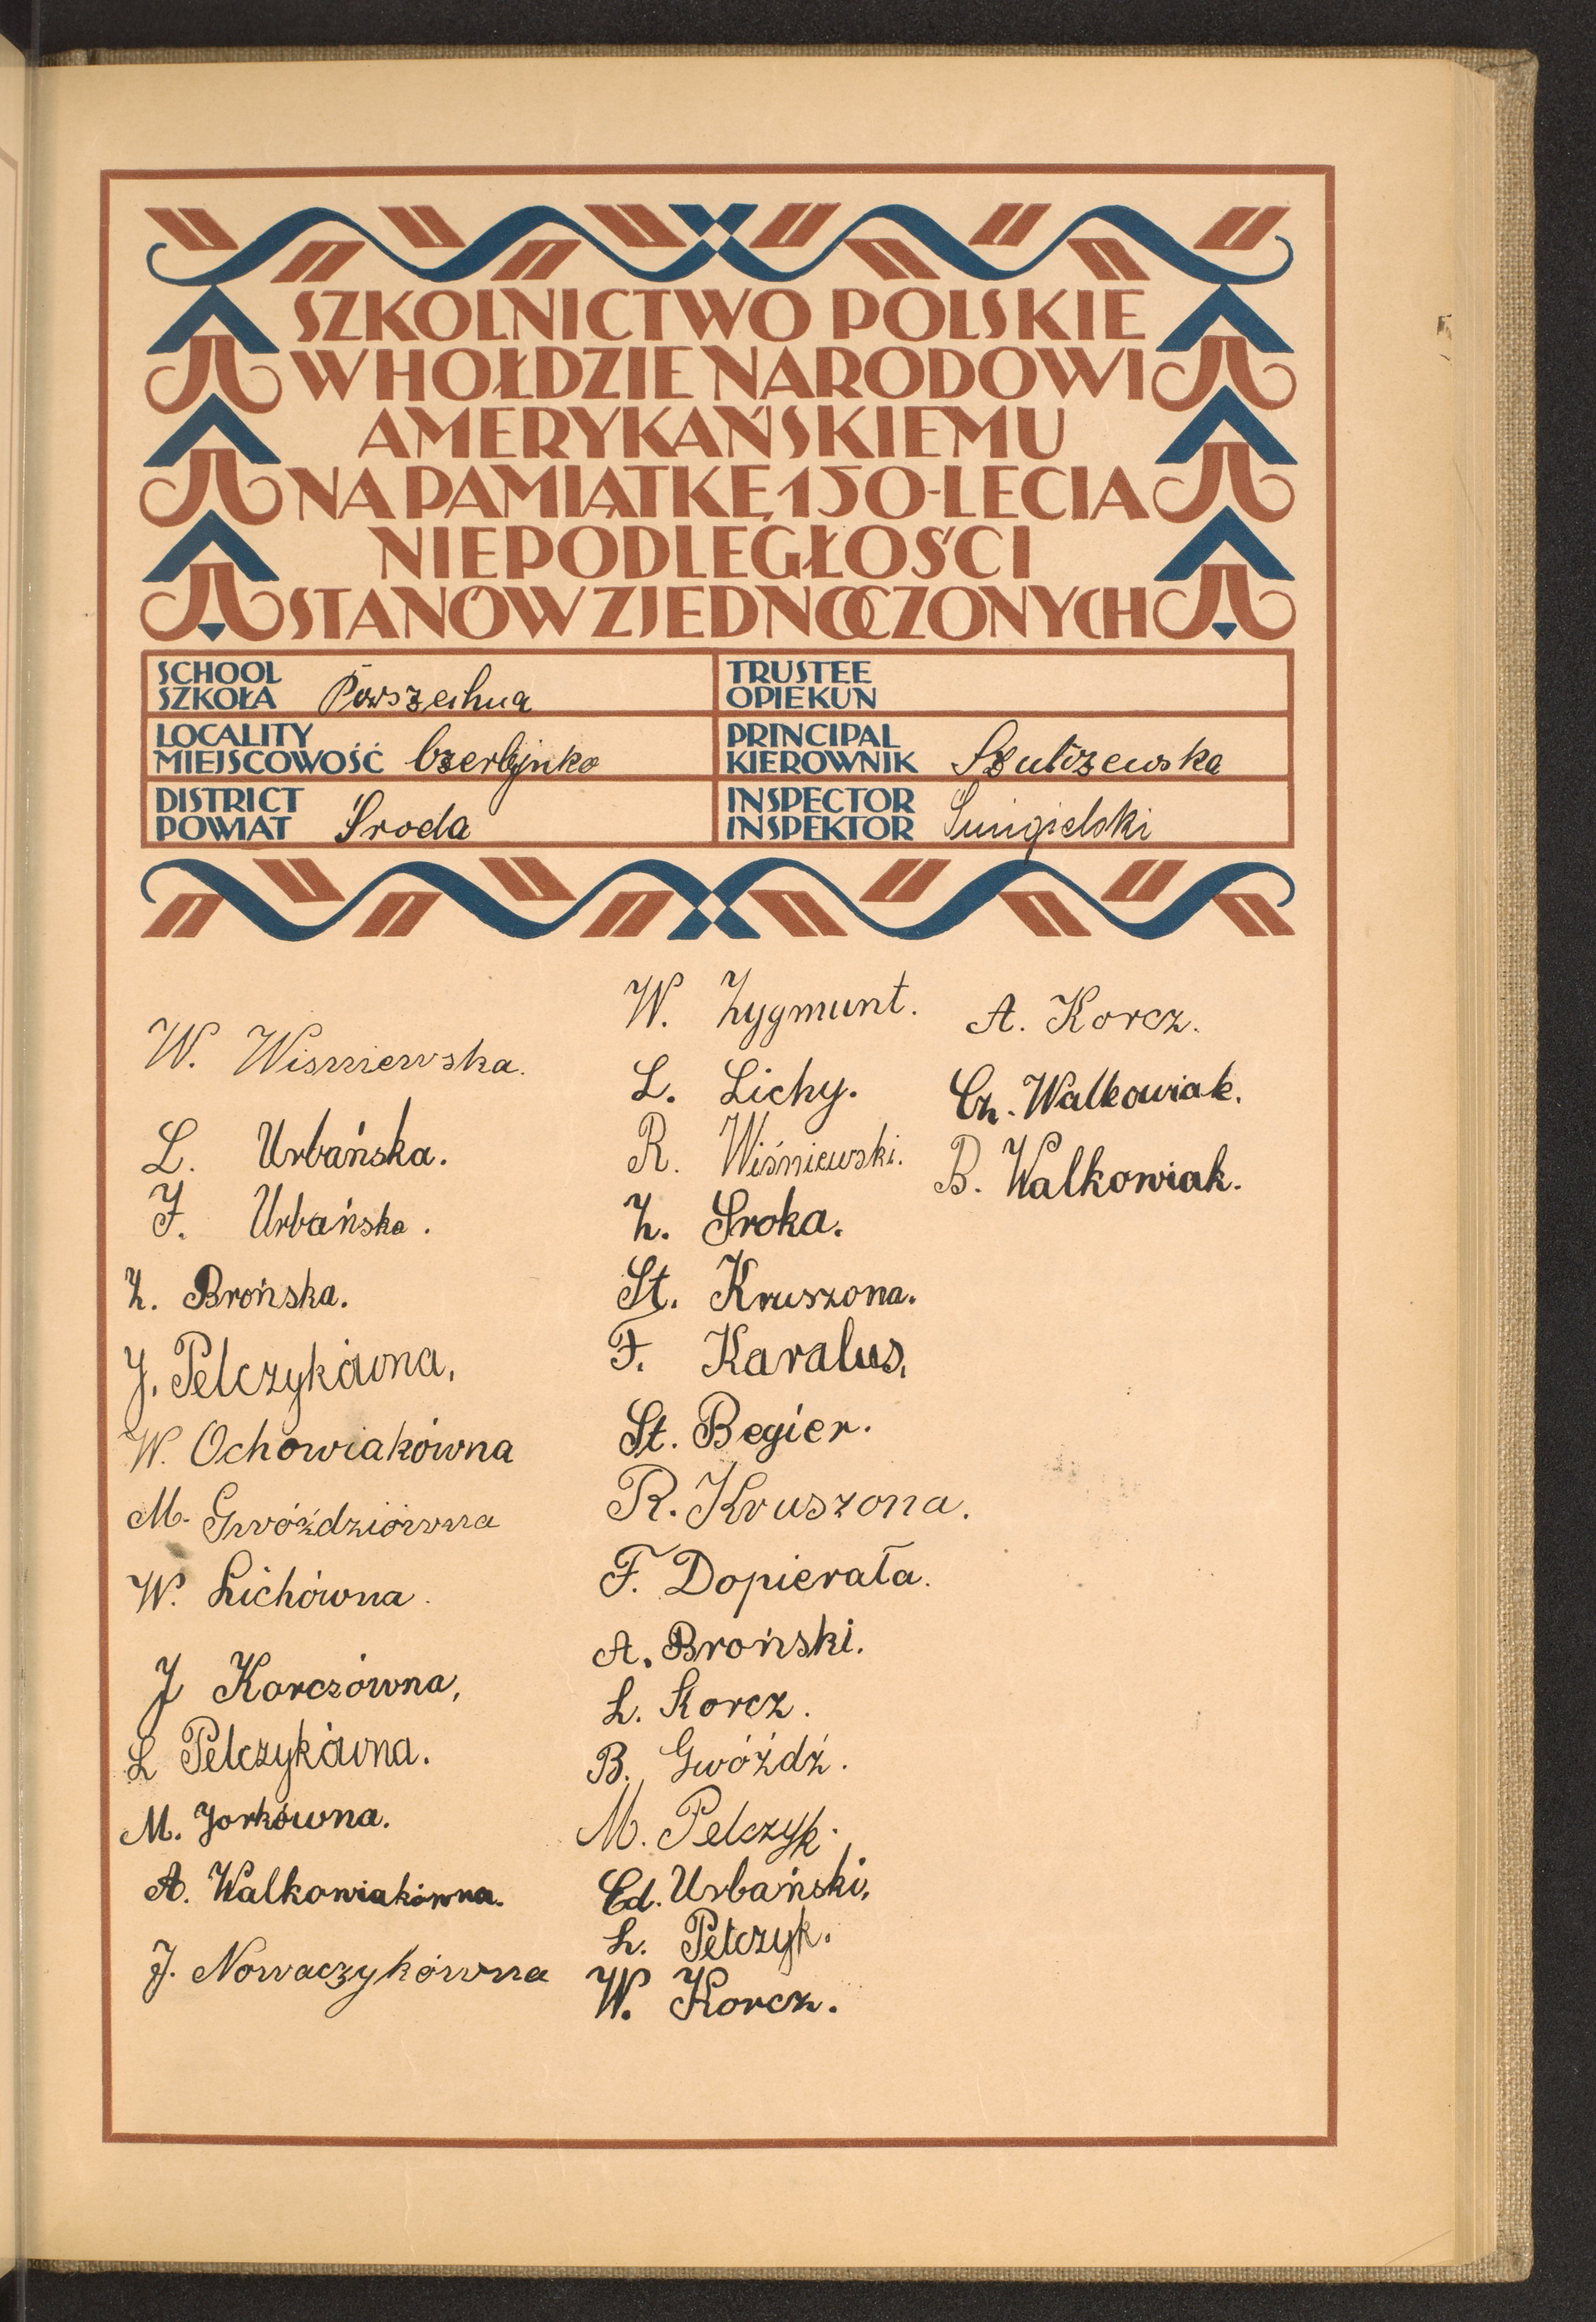 SZKOLNICTWO POLSKIE
W HOŁDZIE NARODOWI
AMERYKAŃSKIEMU
NA PAMIĄTKĘ 150-LECIA
NIEPODLEGŁOŚCI
STANÓW ZJEDNOCZONYCH
SCHOOL
SZKOŁA Powszechna
TRUSTEE
OPIEKUN
LOCALITY
MIEJSCOWOŚĆ Czerlejnko
PRINCIPAL
KIEROWNIK Szulczewska
DISTRICT
POWIAT Środa
INSPECTOR
INSPEKTOR
W. Wisniewska.
L. Urbańska.
F. Urbańska.
Z. Brońska.
J. Pelczykówna,
W. Ochowiakówna
M. Gwóździówna
W. Lichówna.
J Korczówna,
L Pelczykówna.
M. Jorkówna.
A. Walkowiakówna.
J. Nowaczykówna
W. Zygmunt.
L. Lichy.
R. Wiśniewski.
Z. Sroka.
St. Kruszona.
F. Karalus,
St. Begier.
R. Kruszona.
F. Dopierała.
A. Broński.
L. Korcz.
B. Gwóźdź.
M. Pelczyk.
Ed. Urbański,
L. Pelczyk.
W. Korcz.
A. Korcz.
Cz. Walkowiak.
B. Walkowiak.